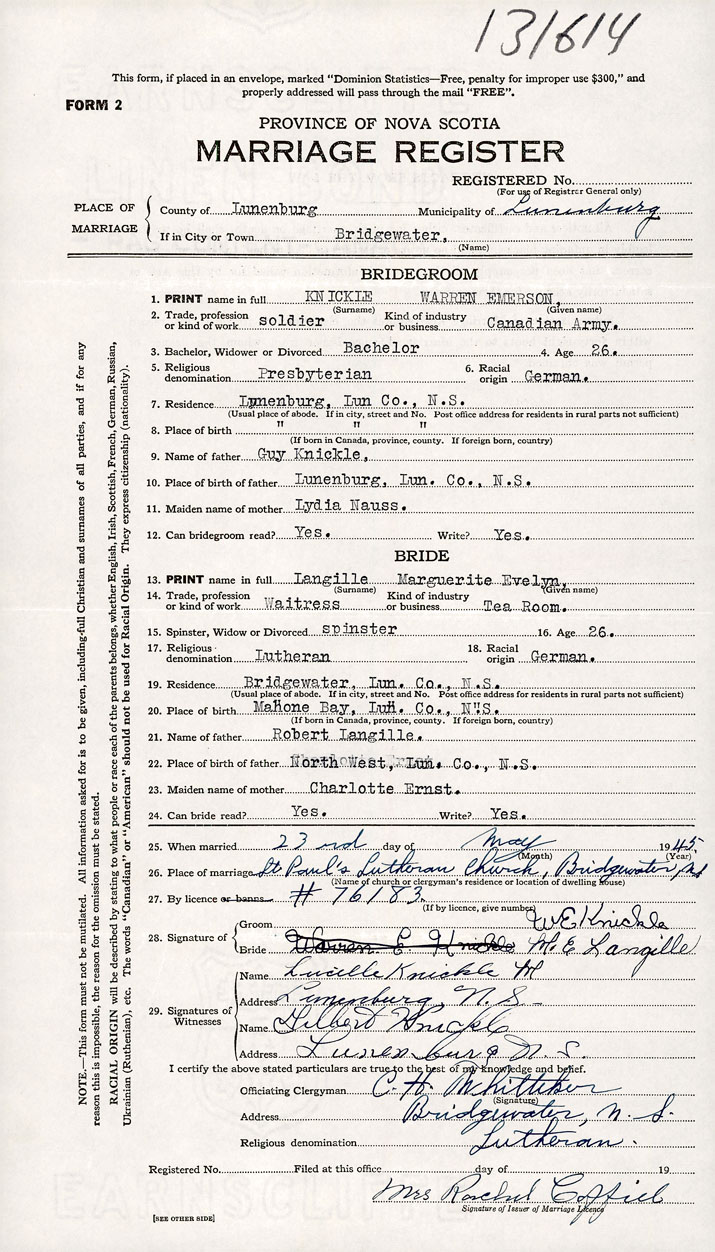 131614
This form, if placed in an envelope, marked "Dominion Statistics—Free, penalty for improper use $300," and
properly addressed will pass through the mail "FREE".
FORM 2
PROVINCE OF NOVA SCOTIA
MARRIAGE REGISTER
REGISTERED No.
(For use of Registrar General only)
PLACE OF MARRIAGE
County of Lunenburg Municipality of Lunenburg
If in City or Town Bridgewater,
(Name)
BRIDEGROOM
1. PRINT name in full KNICKLE WARREN EMERSON,
(Surname) (Given name)
2. Trade, profession or kind of work soldier Kind of industry or business Canadian Army.
3. Bachelor, Widower or Divorced Bachelor 4. Age 26.
5. Religious denomination Presbyterian 6. Racial origin German.
7. Residence Lunenburg, Lun Co., N.S.
(Usual place of abode. If in city, street and No. Post office address for residents in rural parts not sufficient)
8. Place of birth " " "
(If born in Canada, province, county. If foreign born, country)
9. Name of father Guy Knickle,
10. Place of birth of father Lunenburg, Lun. Co., N.S.
11. Maiden name of mother Lydia Nauss.
12. Can bridegroom read? Yes. Write? Yes.
BRIDE
13. PRINT name in full Langille Marguerite Evelyn,
(Surname) (Given name)
14. Trade, profession or kind of work Waitress Kind of industry or business Tea Room.
15. Spinster, Widow or Divorced spinster 16. Age 26.
17. Religious denomination Lutheran 18. Racial origin German.
19. Residence Bridgewater, Lun. Co., N.S.
(Usual place of abode. If in city, street and No. Post office address for residents in rural parts not sufficient)
20. Place of birth Mahone Bay, Lun. Co., N.S.
(If born in Canada, province, county. If foreign born, country)
21. Name of father Robert Langille.
22. Place of birth of father North West, Lun. Co., N.S.
23. Maiden name of mother Charlotte Ernst.
24. Can bride read? Yes. Write? Yes.
25. When married 23rd day of May 1945.
(Month) (Year)
26. Place of marriage St Paul's Lutheran Church, Bridgewater, NS
(Name of church or clergyman's residence or location of dwelling house)
27. By licence or banns # 76183.
(If by licence, give number)
28. Signature of
Groom W E Knickle
Bride Warren E Knickle M. E Langille
29. Signatures of Witnesses
Name Lucille Knickle M
Address Lunenburg, N. S.
Name Gilbert Knickle
Address Lunenburg N. S.
I certify the above stated particulars are true to the best of my knowledge and belief.
Officiating Clergyman C. H.
(Signature)
Address Bridgewater, N. S.
Religious denomination Lutheran.
Registered No. Filed at this office day of 19
Mrs
Signature of Issuer of Marriage Licence
[SEE OTHER SIDE]
NOTE.—This form must not be mutilated. All information asked for is to be given, including full Christian and surnames of all parties, and if for any
reason this is impossible, the reason for the omission must be stated.
RACIAL ORIGIN will be described by stating to what people or race each of the parents belongs, whether English, Irish, Scottish, French, German, Russian,
Ukrainian (Ruthenian), etc. The words "Canadian" or "American" should not be used for Racial Origin. They express citizenship (nationality).